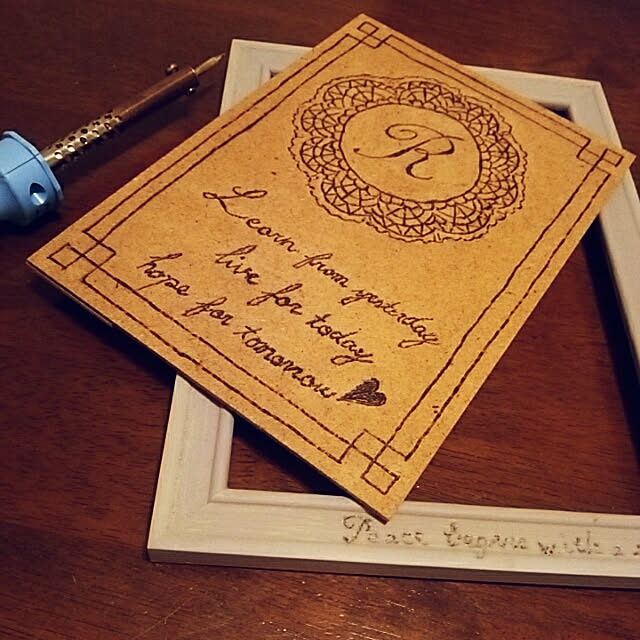 R
Learn from yesterday
live for today
hope for tomorrow
Peace begins with a